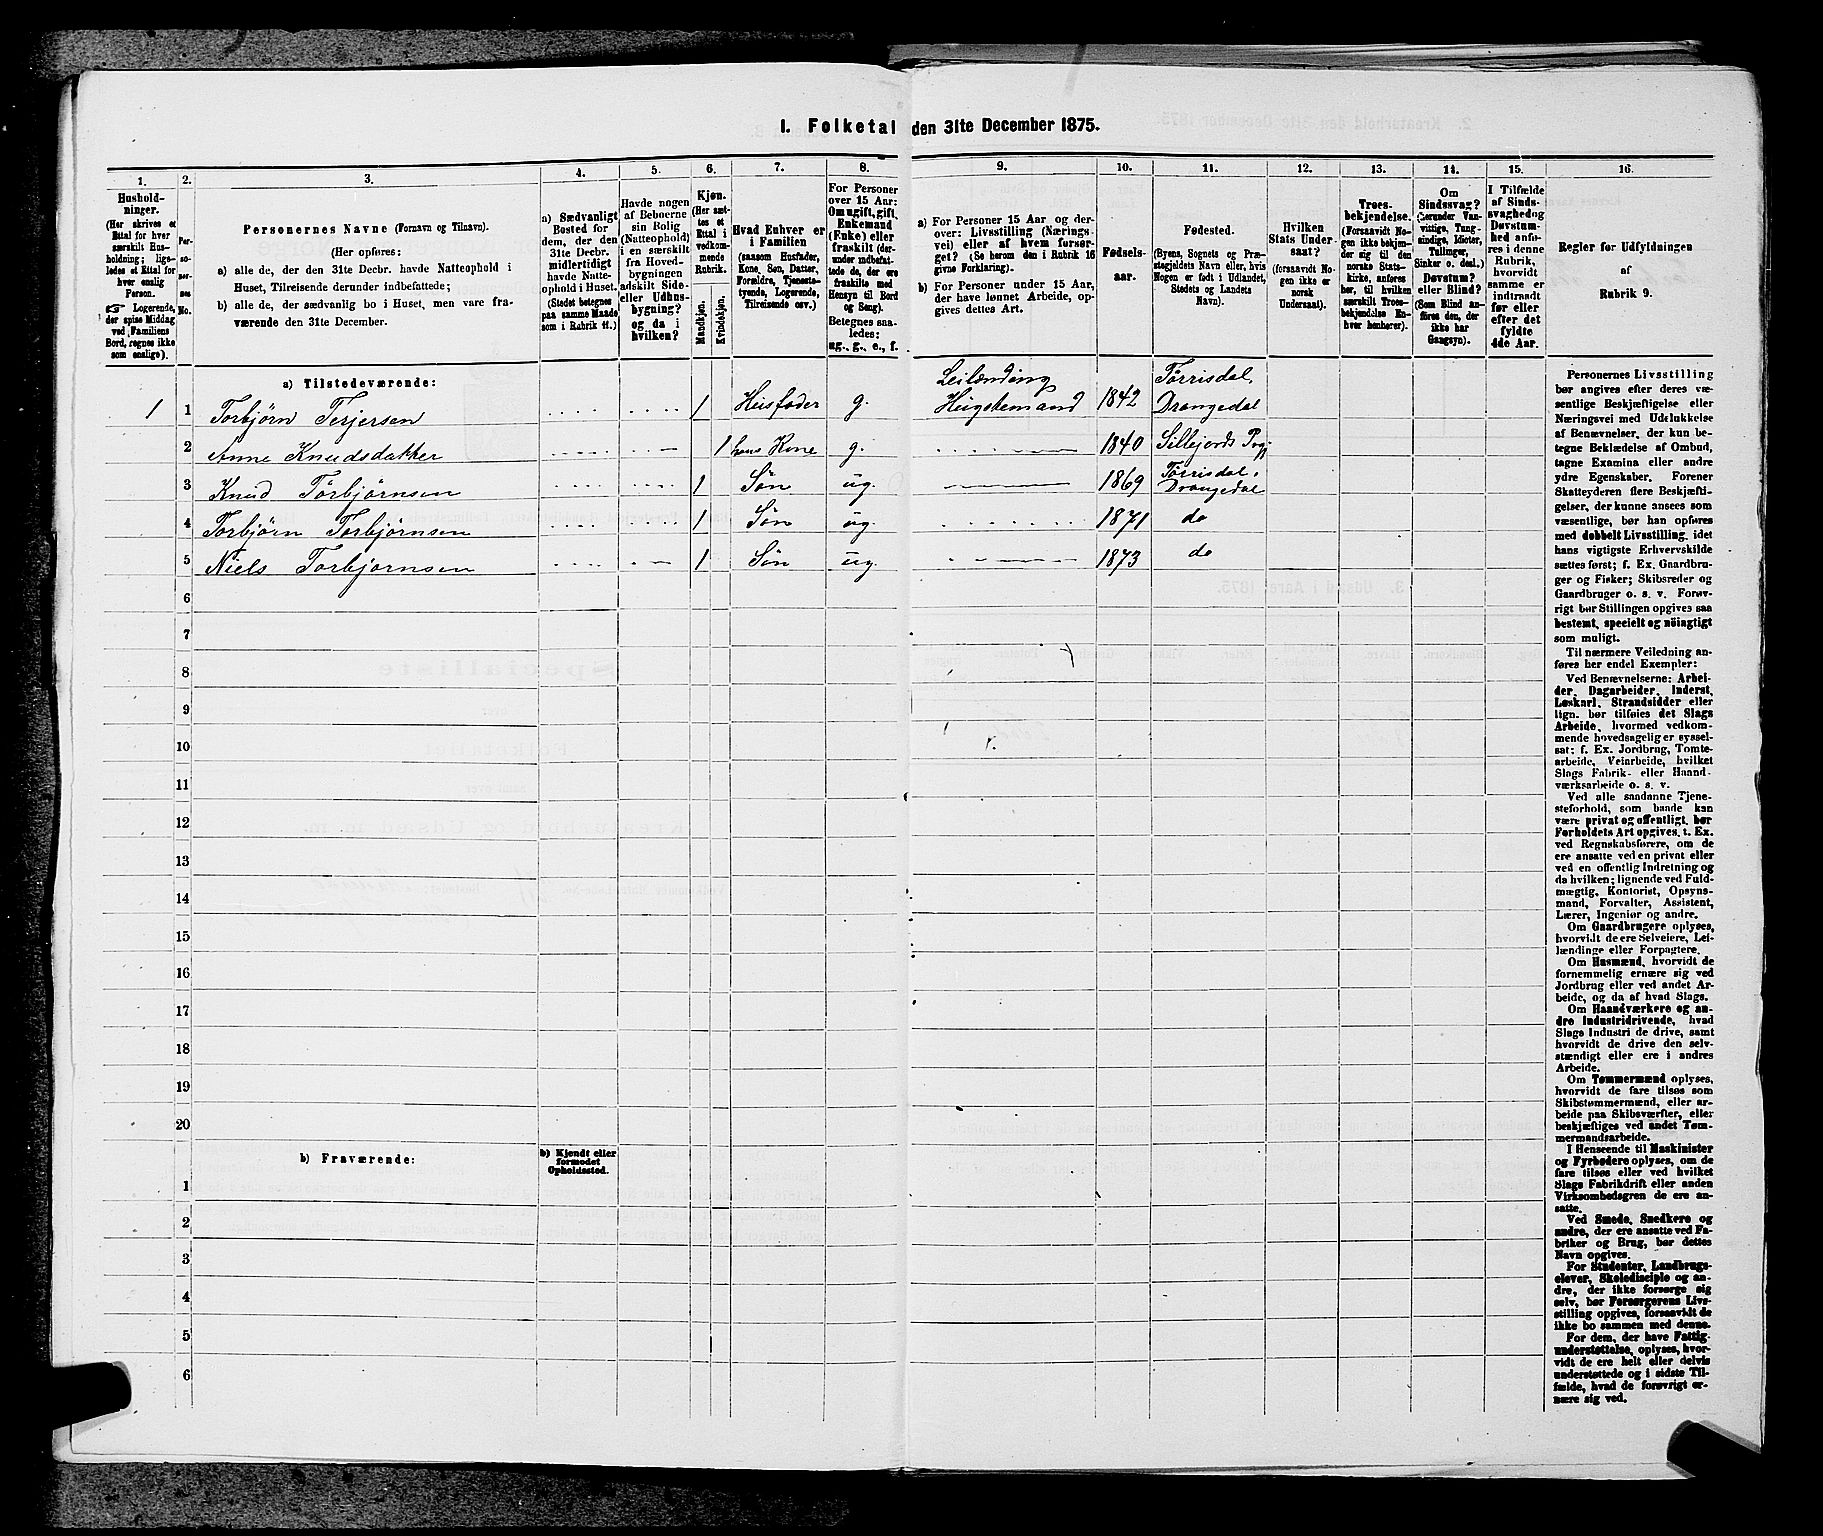 I. Folketal den 31te December 1875.
1.
Hushold-
ninger.
(Her skrives et
Ettal for hver
særskilt Hus-
holdning; lige-
ledes et Ettal for
hver enslig
Person.
☞ Logerende,
der spise Middag
ved Familiens
Bord, regnes ikke
som enslige).
2.
Per-
so-
ner-
nes
No.
3.
Personernes Navne (Fornavn og Tilnavn).
(Her opføres:
a) alle de, der den 31te Decbr. havde Natteophold i
Huset, Tilreisende derunder indbefattede;
b) alle de, der sædvanlig bo i Huset, men vare fra-
værende den 31te December.
4.
a) Sædvanligt
Bosted for
dem, der den
31te Decbr.
midlertidigt
havde Natte-
ophold i Huset.
(Stedet betegnes
paa samme Maade
som i Rubrik 11.)
5.
Havde nogen
af Beboerne
sin Bolig
(Natteophold)
i en særskilt
fra Hoved-
bygningen
adskilt Side-
eller Udhus-
bygning?
og da i
hvilken?
6.
Kjøn.
(Her sæt-
tes et
Ettal i
vedkom-
mende
Rubrik.
Mandkjøn.
Kvindekjøn.
7.
Hvad Enhver er
i Familien
(saasom Husfader,
Kone, Søn, Datter,
Forældre, Tjeneste-
tyende, Logerende,
Tilreisende osv.)
8.
For Personer
over 15 Aar:
Om ugift, gift,
Enkemand
(Enke) eller
fraskilt (der-
under indbefat-
tede de, der ere
fraskilte med
Hensyn til Bord
og Seng).
Betegnes saa-
ledes:
ug., g., e., f.
9.
a) For Personer 15 Aar og der-
over: Livsstilling (Nærings-
vei) eller af hvem forsør-
get? (Se herom den i Rubrik 16
givne Forklaring).
b) For Personer under 15 Aar,
der have lønnet Arbeide, op-
gives dettes Art.
10.
Fødsels-
aar.
11.
Fødested.
(Byens, Sognets og Præ-
stegjeldets Navn eller, hvis
Nogen er født i Udlandet,
Stedets og Landets
Navn).
12.
Hvilken
Stats Under-
saat?
(forsaavidt No-
gen ikke er
norsk
Undersaat).
13.
Troes-
bekjendelse.
(Forsaavidt No-
gen ikke bekjen-
der sig til den
norske Stats-
kirke, anføres
her, til hvilken
særskilt Troes-
bekjendelse En-
hver henhører).
14.
Om
Sindssvag?
(herunder Van-
vittige, Tung-
sindige, Idioter,
Tullinger,
Sinker o. desl.)
Døvstum?
eller Blind?
(Som Blind an-
føres den, der
ikke har
Gangsyn).
15.
I Tilfælde
af Sinds-
svaghed og
Døvstum-
hed anfø-
res i denne
Rubrik,
hvorvidt
samme er
indtraadt
før eller
efter det
fyldte
4de Aar.
16.
Regler for Udfyldningen
af
Rubrik 9.
a) Tilstedeværende:
1 1 Torbjørn Terjersen 1 Husfader g. Leilænding Hugstemand 1842 Tørrisdal, Drangedal
2 Anne Knudsdatter 1 hans Kone g. 1840 Sillejords Prgj
3 Knud Torbjørnsen 1 Søn ug. 1869 Tørrisdal, Drangedal
4 Torbjørn Torbjørnsen 1 Søn ug. 1871 do
5 Niels Torbjørnsen 1 Søn ug. 1873 do
6
7
8
9
10
11
12
13
14
15
16
17
18
19
20
b) Fraværende:
b) Kjendt eller
formodet
Opholdssted.
1
2
3
4
5
6
Personernes Livsstilling
bør angives efter deres væ-
sentlige Beskjæftigelse eller
Næringsvei med Udelukkelse
af Benævnelser, der kun be-
tegne Beklædelse af Ombud,
tagne Examina eller andre
ydre Egenskaber. Forener
Skatteyderen flere Beskjæfti-
gelser, der kunne ansees som
væsentlige, bør han opføres
med dobbelt Livsstilling, idet
hans vigtigste Erhvervskilde
sættes først; f. Ex. Gaardbru-
ger og Fisker; Skibsreder og
Gaardbruger o. s. v. Forøv-
rigt bør Stillingen opgives saa
bestemt, specielt og nøiagtigt
som muligt.
Til nærmere Veiledning an-
føres her endel Exempler:
Ved Benævnelserne: Arbei-
der, Dagarbeider, Inderst,
Løskarl, Strandsidder eller
lign. bør tilføies det Slags
Arbeide, hvormed vedkom-
mende hovedsagelig er syssel-
sat; f. Ex. Jordbrug, Tomte-
arbeide, Veiarbeide, hvilket
Slags Fabrik- eller Haand-
værksarbeide o. s. v.
Ved alle saadanne Tjene-
steforhold, som baade kan
være privat og offentligt, bør
Forholdets Art opgives, t. Ex.
ved Regnskabsførere, om de
ere ansatte ved en privat eller
ved en offentlig Indretning og
da hvilken; lignende ved Fuld-
mægtig, Kontorist, Opsyns-
mand, Forvalter, Assistent,
Lærer, Ingeniør og andre.
Om Gaardbrugere oplyses,
hvorvidt de ere Selveiere, Lei-
lændinge eller Forpagtere.
Om Husmænd, hvorvidt de
fornemmelig ernære sig ved
Jordbrug eller ved andet Ar-
beide, og da af hvad Slags.
Om Haandværkere og an-
dre Industridrivende, hvad
Slags Industri de drive, samt
hvorvidt de drive den selv-
stændigt eller ere i andres
Arbeide.
Om Tømmermænd oplyses,
hvorvidt de fare tilsøs som
Skibstømmermænd, eller ar-
beide paa Skibsværfter, eller
beskjæftiges ved andet Tøm-
mermandsarbeide.
I Henseende til Maskinister
og Fyrbødere oplyses, om de
fare tilsøs eller ved hvilket
Slags Fabrikdrift eller anden
Virksomhedsgren de ere an-
satte.
Ved Smede, Snedkere og
andre, der ere ansatte ved Fa-
briker og Brug, bør dettes
Navn opgives.
For Studenter, Landbrugs-
elever, Skoledisciple og an-
dre, der ikke forsørge sig
selv, bør Forsørgerens Livs-
stilling opgives, forsaavidt de
ikke bo sammen med denne.
For dem, der have Fattig-
understøttelse, oplyses, hvor-
vidt de ere helt eller delvis
understøttede og i sidste Til-
fælde, hvad de forøvrigt er-
nære sig ved.